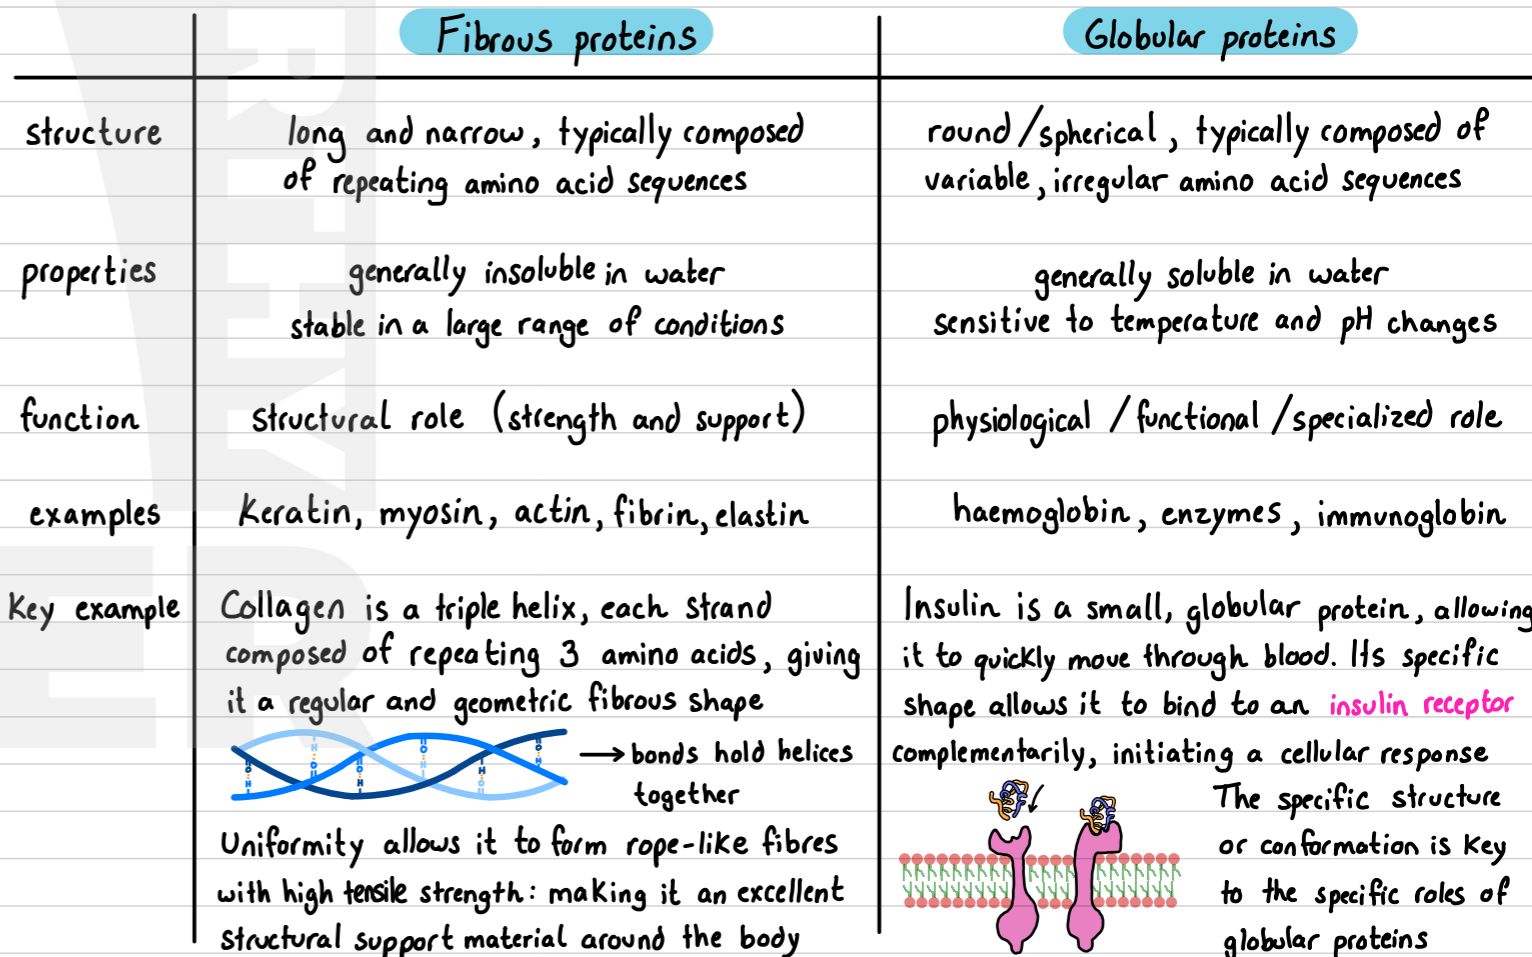 Fibrous proteins
Globular proteins
structure
long and narrow, typically composed
of repeating amino acid sequences
round/spherical, typically composed of
variable, irregular amino acid sequences
properties
generally insoluble in water
stable in a large range of conditions
generally soluble in water
sensitive to temperature and pH changes
function
structural role (strength and support)
physiological/functional/specialized role
examples
Keratin, myosin, actin, fibrin, elastin
haemoglobin, enzymes, immunoglobin
Key example
Collagen is a triple helix, each strand
composed of repeating 3 amino acids, giving
it a regular and geometric fibrous shape
→ bonds hold helices
together
Uniformity allows it to form rope-like fibres
with high tensile strength: making it an excellent
structural support material around the body
Insulin is a small, globular protein, allowing
it to quickly move through blood. Its specific
shape allows it to bind to an insulin receptor
complementarily, initiating a cellular response
The specific structure
or conformation is key
to the specific roles of
globular proteins